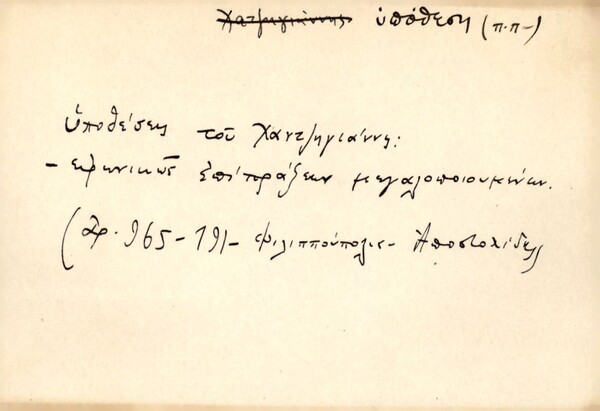 Χατζηγιάννης ὑπόθεση (π.π-)
ὑποθέσεις τοῦ Χαντζηγιάννη:
- εἰρωνικῶς ἐπί πράξεων μεγαλοποιουμένων.
(Ἀρ. 965-191- Φιλιππούπολις- Ἀποστολίδης